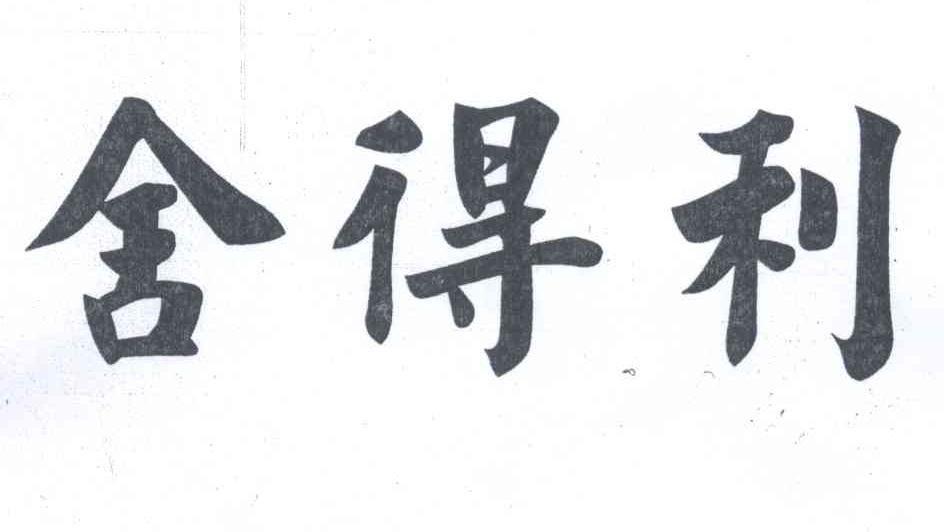 舍得利